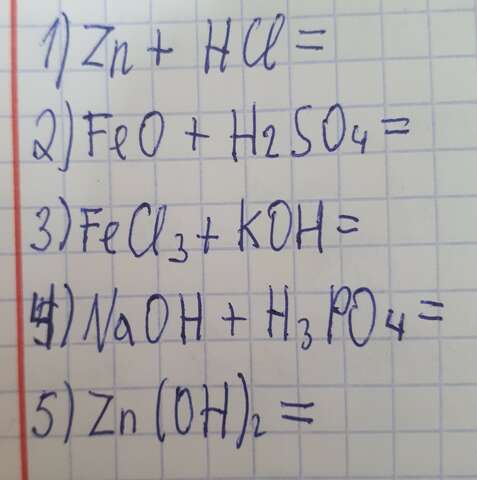 1) Zn + HCl =
2) FeO + H2SO4 =
3) FeCl3 + KOH =
4) NaOH + H3PO4 =
5) Zn(OH)2 =